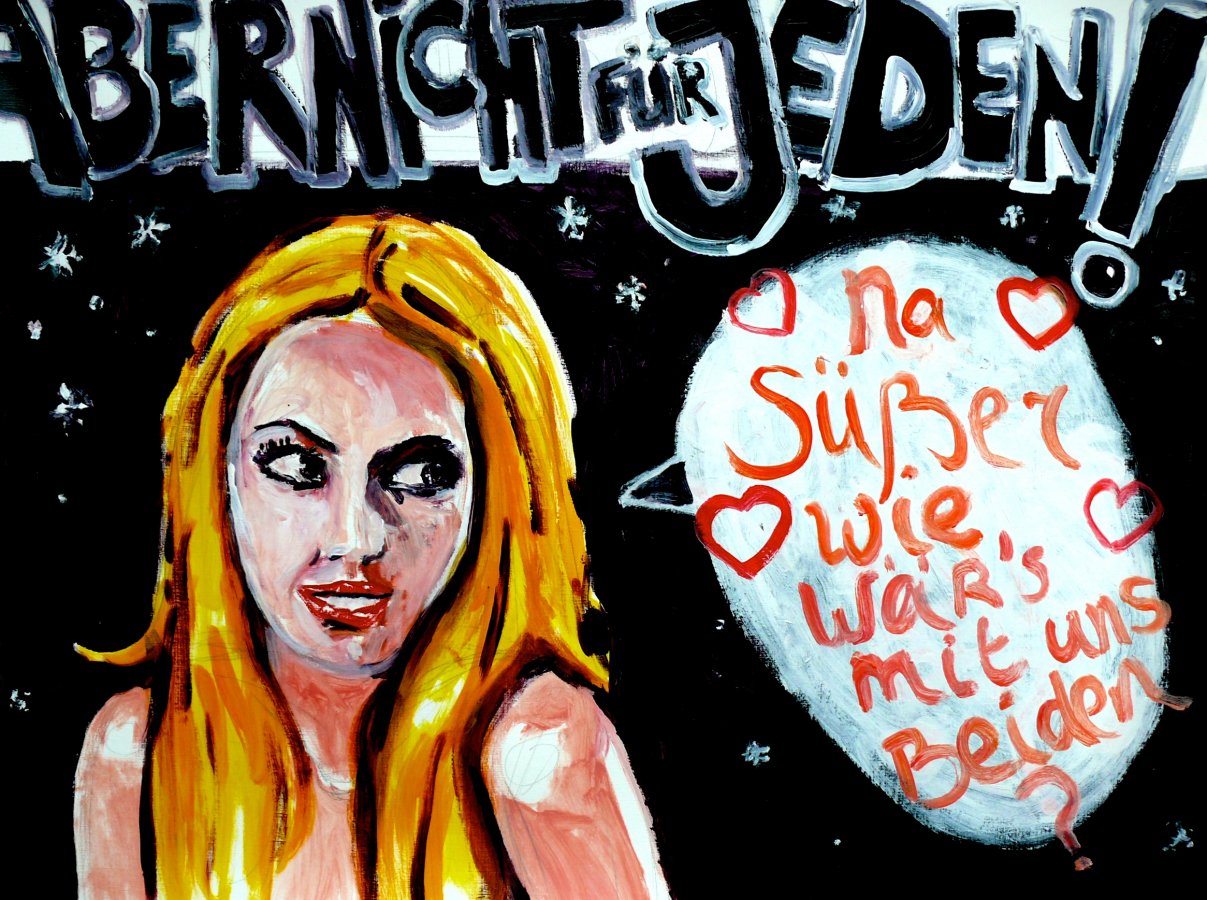 ABER NiCHT FÜR JEDEN!
Na
Süßer
wie
wäR's
mit uns
Beiden
?